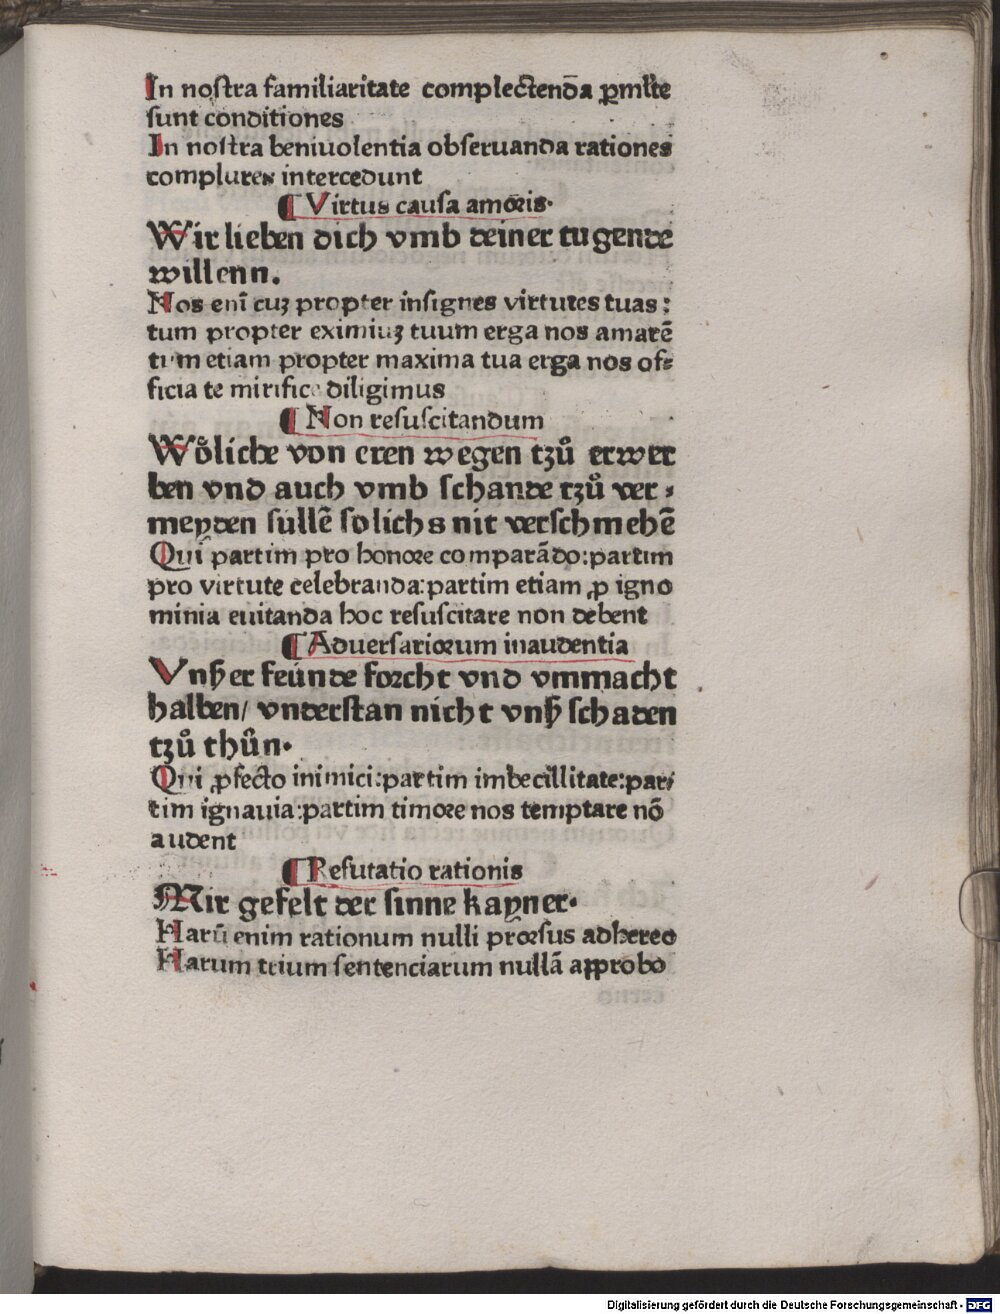 In nostra familiaritate complectenda̅ ꝑml̅te
sunt conditiones
In nostra beniuolentia obseruanda rationes
complures intercedunt
¶ Virtus causa amoris·
Wir lieben dich vmb deiner tugende
willenn.
Nos eni̅ cuʒ propter insignes virtutes tuas:
tum propter eximiuʒ tuum erga nos amare̅
tum etiam propter maxima tua erga nos of⸗
ficia te mirifice diligimus
¶ Non resuscitandum
Wo̊liche von eren wegen tzů erwer
ben vnd auch vmb schande tzů ver⸗
meyden sulle̅ solichs nit verschmehe̅
Qui partim pro honore compara̅do:partim
pro virtute celebranda:partim etiam ꝓ igno
minia euitanda hoc resuscitare non debent
¶ Aduersariorum inaudentia
Vnßer feúnde forcht vnd vmmacht
halben/ vnderstan nicht vnß schaden
tzů thůn·
Qui ꝓfecto inimici:partim imbecillitate:par⸗
tim ignauia:partim timore nos temptare no̅
audent
¶ Refutatio rationis
Mir gefelt der sinne kayner·
Haru̅ enim rationum nulli prorsus adhereo
Harum trium sentenciarum nulla̅ approbo
Digitalisierung gefördert durch die Deutsche Forschungsgemeinschaft - DFG